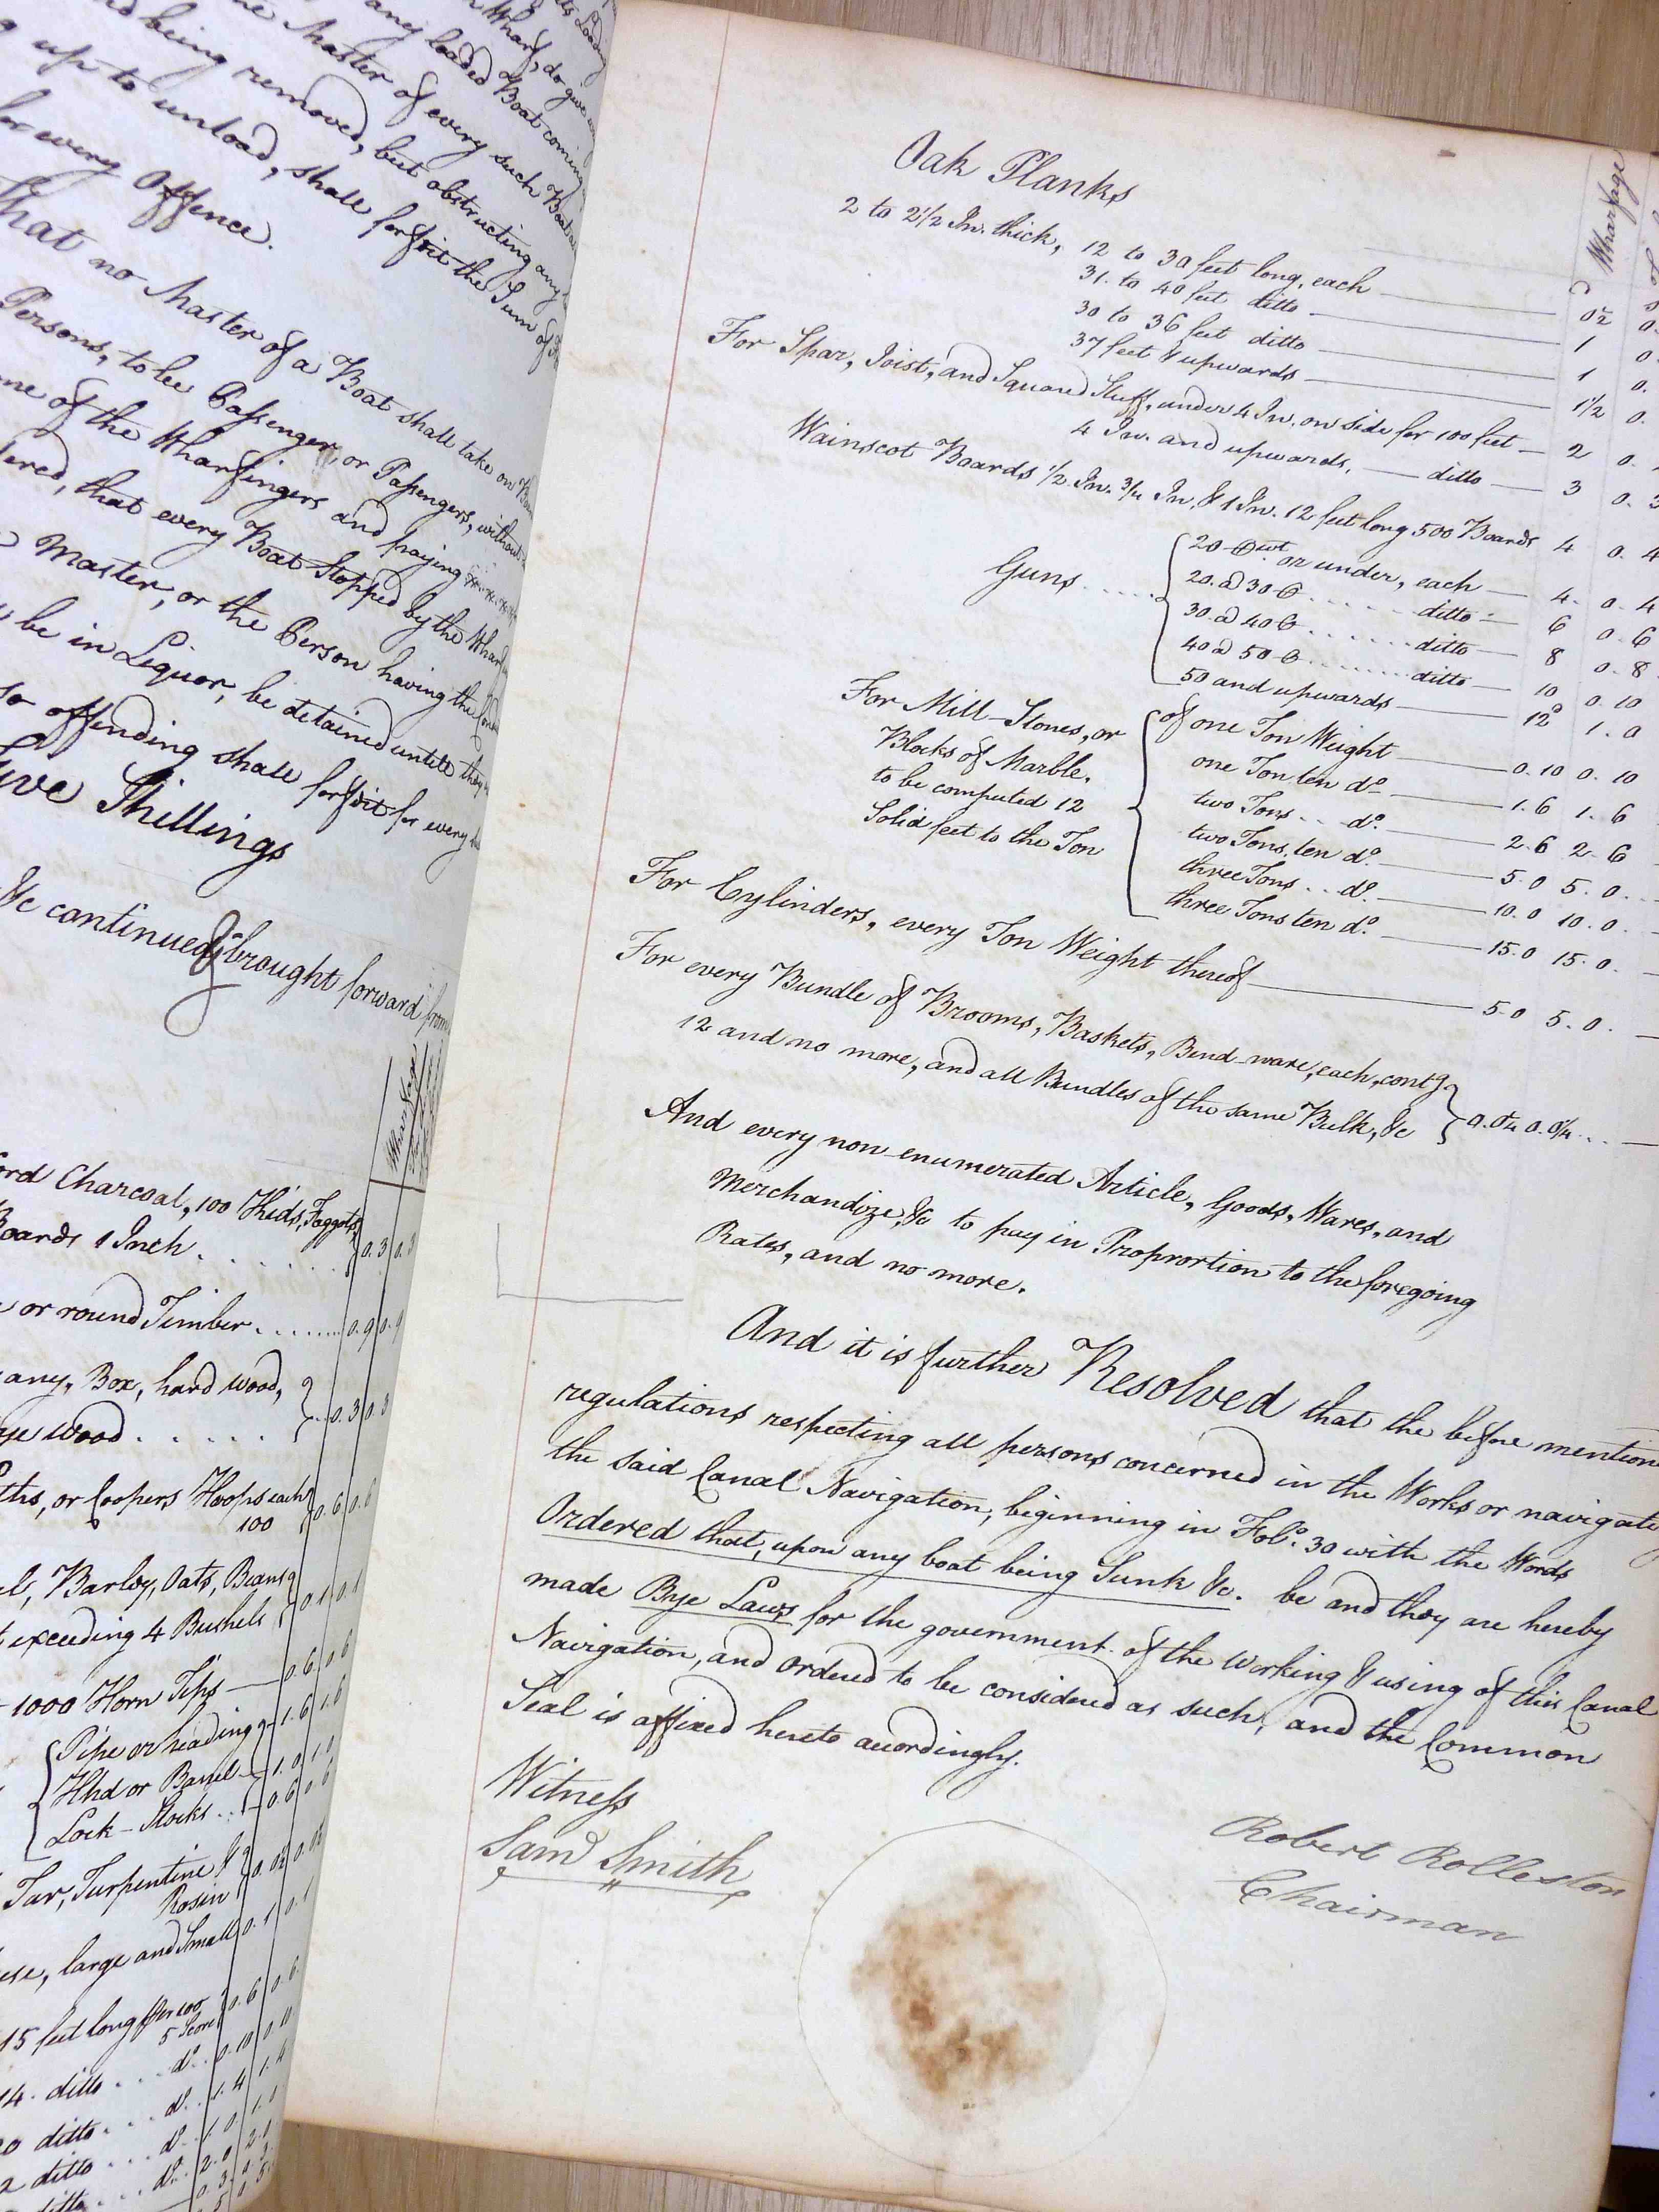 Loading
Wharf, do give
any loaded Boat coming
the Master of every such Boat
being removed, but obstructing any
up to unload, shall forfeit the Sum of
for every Offence.
That no Master of a Boat shall take on
Persons, to be Passenger, or Passengers, without
one of the Wharfingers and paying
that every Boat Stopped by the
Master, or the Person having the
be in Liquor, be detained untill they
so offending shall forfeit for every
Five Shillings
&c continued & brought forward from
Wharfage
Charcoal, 100 Kids, Faggots, 0.3 0.3
Boards 1 Inch
or round Timber 0.9 0.9
any, Box, hard Wood, 0.3 0.3
wood
or Coopers Hoops each 0.6 0.6
100
Barley, Oats, Beans 0.1 0.1
exceeding 4 Bushels
1000 Horn Tips 0.6 0.6
Pipe or heading 1.6 1.6
Hhd or Barrel 1.0 1.0
Lock-Stocks 0.6 0.6
Tar, Turpentine &
Rosin
large and Small 0.1 0.1
15 feet long per 100 0.6 0.6
5 Score
14. ditto do. 0.10 0.10
ditto do. 1.4 1.4
ditto do. 1.0 1.0
ditto do. 2.0 2.0
Wharfage
Oak Planks
2 to 2½ In. thick, 12 to 30 feet long, each 0½ 0.
31. to 40 feet ditto 1 0.
30 to 36 feet ditto 1 0.
37 feet & upwards 1½ 0.
For Spar, Joist, and Squared Stuff, under 4 In. on side for 100 feet 2 0.
4 In. and upwards, ditto 3 0.3
Wainscot Boards ½ In. ¾ In. & 1 In. 12 feet long 500 Boards 4 0.4
Guns 20 Cwt or under, each 4. 0.4
20. a 30 C ditto 6 0.6
30. a 40 C ditto 8 0.8
40 a 50 C ditto 10 0.10
50 and upwards 12 1.0
For Mill-Stones, or of one Ton Weight 0.10 0.10
Blocks of Marble, one Ton ten do. 1.6 1.6
to be computed 12 two Tons do. 2.6 2.6
Solid feet to the Ton two Tons ten do. 5.0 5.0
three Tons do. 10.0 10.0
three Tons ten do. 15.0 15.0
For Cylinders, every Ton Weight thereof 5.0 5.0
For every Bundle of Brooms, Baskets, Bend-ware, each, contg.
12 and no more, and all Bundles of the same Bulk, &c 0.0¼ 0.0¼
And every non enumerated Article, Goods, Wares, and
Merchandize, &c to pay in Proportion to the foregoing
Rates, and no more.
And it is further Resolved that the before mention
regulations respecting all persons concerned in the Works or navigating
the said Canal Navigation, beginning in Folo. 30 with the Words
Ordered that, upon any boat being Sunk &c. be and they are hereby
made Bye Laws for the government of the working & using of this Canal
Navigation, and ordered to be considered as such, and the Common
Seal is affixed hereto accordingly.
Witness
Saml Smith
Robert Rolleston
Chairman